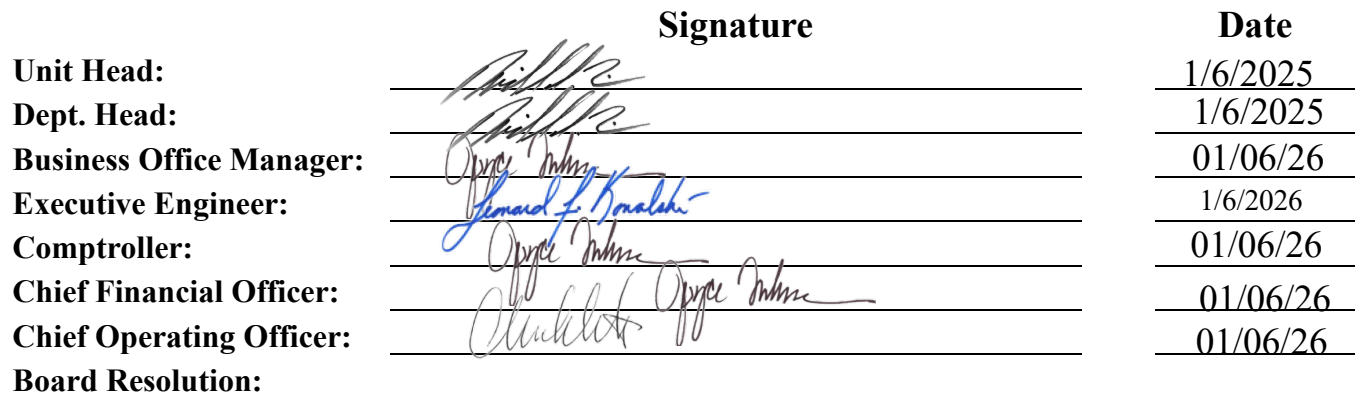 Signature Date
Unit Head: 1/6/2025
Dept. Head: 1/6/2025
Business Office Manager: Joyce 01/06/26
Executive Engineer: Leonard F. Kowalski 1/6/2026
Comptroller: Joyce 01/06/26
Chief Financial Officer: Joyce 01/06/26
Chief Operating Officer: 01/06/26
Board Resolution: